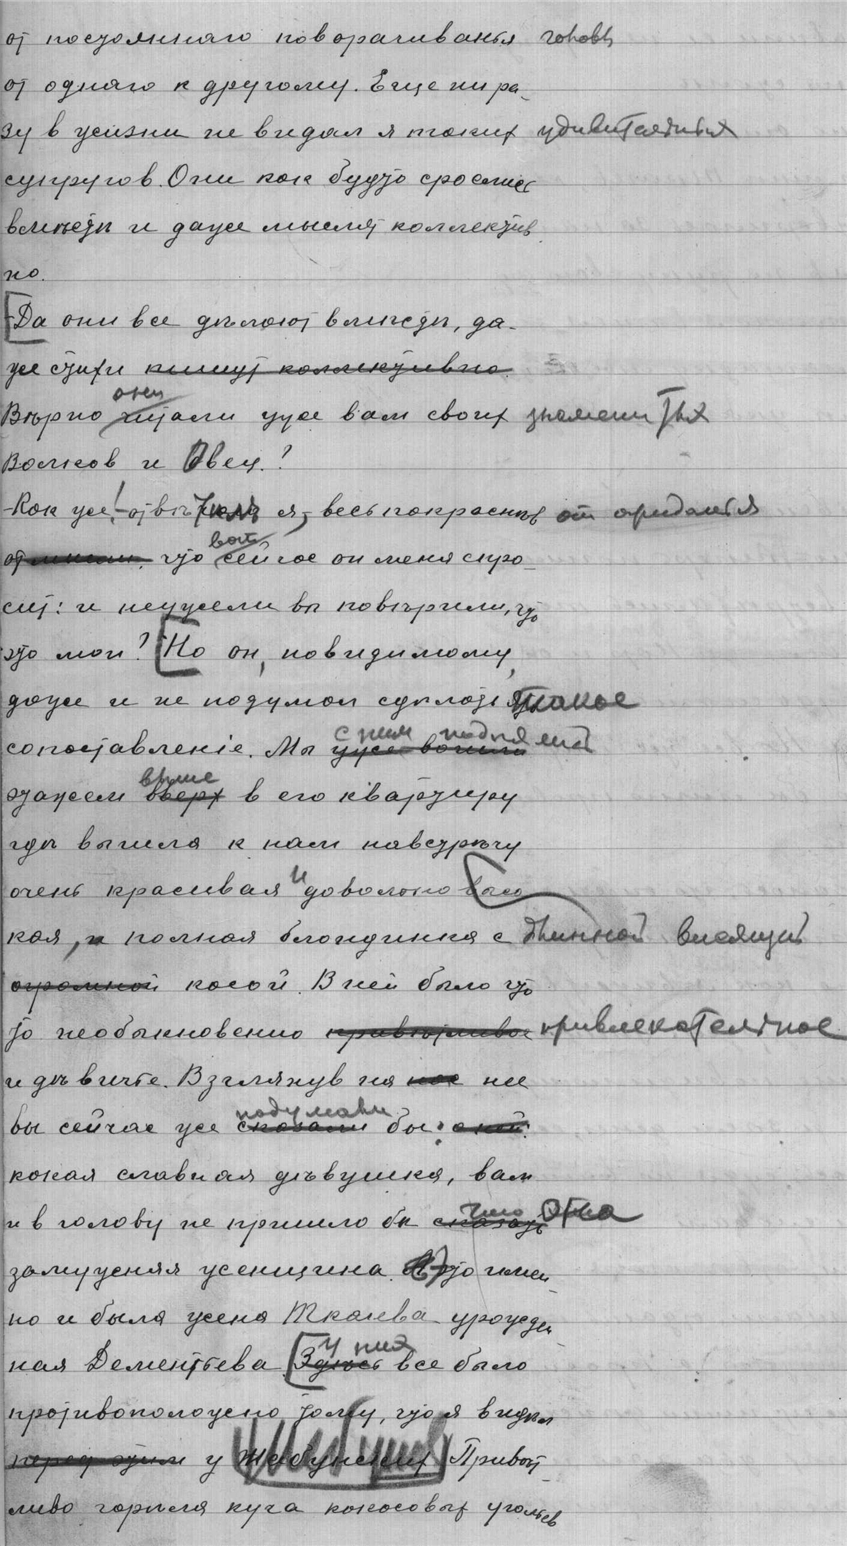 от постояннаго поворачиванья головы
от одного к другому. Еще ни ра-
зу в жизни не видал я таких удивительных
супругов. Они как будто срослись
вместѣ и даже мыслят коллектив
но.
[-Да они все дѣлают вмѣстѣ, да-
же стихи пишут коллективно.
Вѣрно они читали уже вам своих знаменитых
Волков и Овец?
-Как же! - отвѣтил я, весь покраснѣв от ожидания
от мысли, что вот сейчас он меня спро-
сит: и неужели вы повѣрили, что
это мои? [Но он, повидимому,
даже и не подумал сдѣлать такое
сопоставленіе. Мы уже вошли с ним поднялись
этажем вверх выше в его квартиру
гдѣ вышла к нам навстрѣчу
очень красивая и довольно высо
кая, и полная блондинка с длинной висящей
огромной косой. В ней было что
то необыкновенно привлекательное
и дѣвичье. Взглянув на нее
вы сейчас же сказали подумали бы:
какая славная дѣвушка, вам
и в голову не пришло бы сказать что она
замужняя женщина. Это имен-
но и была жена Ткачева урожден
ная Дементьева. [Здѣсь У них все было
противоположно тому, что я видѣл
перед этим у Жабунских Привѣт-
ливо горѣла куча кокосовых угольев